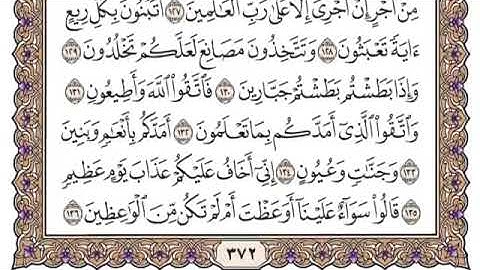 مِنْ أَجْرٍ إِنْ أَجْرِىَ إِلَّا عَلَىٰ رَبِّ ٱلْعَٰلَمِينَ ١٢٧ أَتَبْنُونَ بِكُلِّ رِيعٍ
ءَايَةً تَعْبَثُونَ ١٢٨ وَتَتَّخِذُونَ مَصَانِعَ لَعَلَّكُمْ تَخْلُدُونَ ١٢٩
وَإِذَا بَطَشْتُم بَطَشْتُمْ جَبَّارِينَ ١٣٠ فَٱتَّقُوا۟ ٱللَّهَ وَأَطِيعُونِ ١٣١
وَٱتَّقُوا۟ ٱلَّذِىٓ أَمَدَّكُم بِمَا تَعْلَمُونَ ١٣٢ أَمَدَّكُم بِأَنْعَٰمٍ وَبَنِينَ
١٣٣ وَجَنَّٰتٍ وَعُيُونٍ ١٣٤ إِنِّىٓ أَخَافُ عَلَيْكُمْ عَذَابَ يَوْمٍ عَظِيمٍ
١٣٥ قَالُوا۟ سَوَآءٌ عَلَيْنَآ أَوَعَظْتَ أَمْ لَمْ تَكُن مِّنَ ٱلْوَٰعِظِينَ ١٣٦
٣٧٢